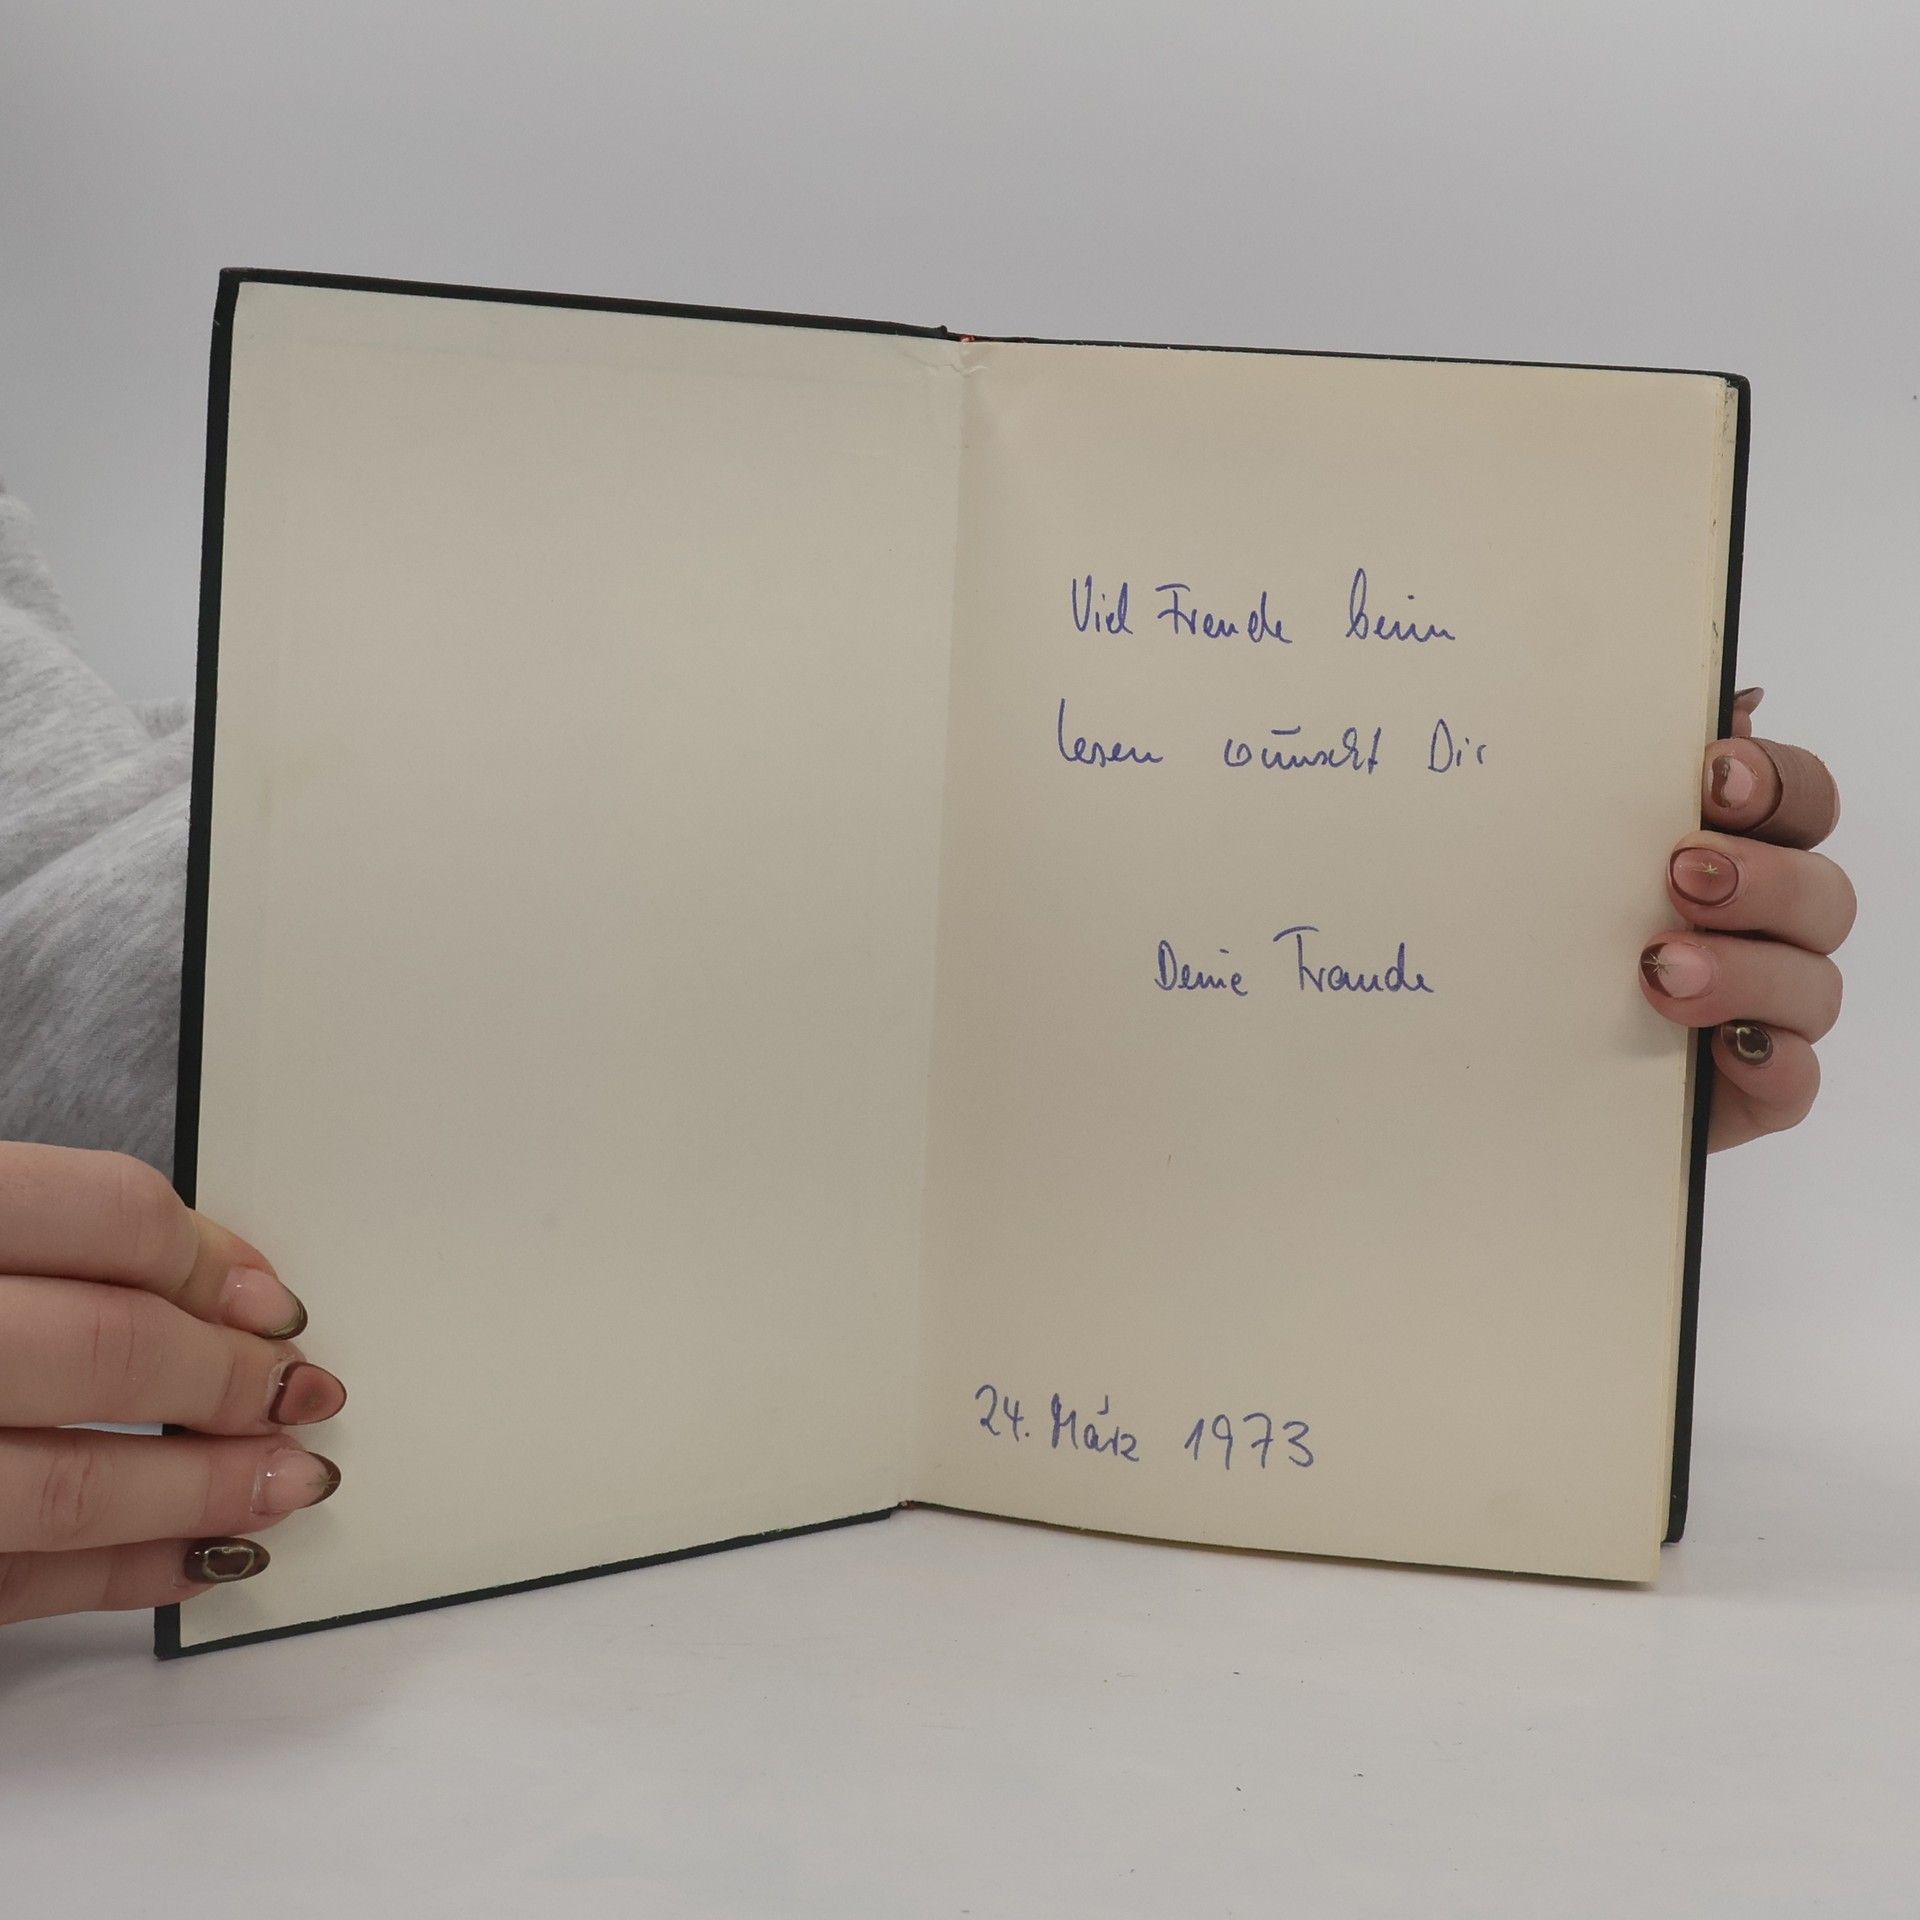 Viel Freude beim
lesen wünscht Dir
Deine Traude
24. März 1973